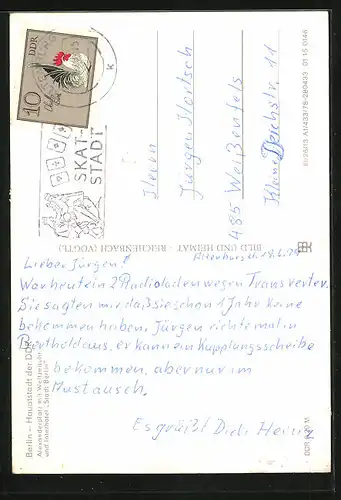 DDR
10
SKAT-
STADT
K
Herrn
Jürgen Hartsch
485 Weißenfels
Kleine Deichstr. 11
BILD UND HEIMAT · REICHENBACH (VOGTL.)
III/26/13 A1/433/78-280433 01 15 0146
Altenburg d.
Lieber Jürgen!
War heute in 2 Radioladen wegen Transverter.
Sie sagten mir daß sie schon 1 Jahr keine
bekommen haben. Jürgen richte mal in
Berthold aus, er kann ein Kupplungsscheibe
bekommen, aber nur im
Austausch.
Es grüßt Dich Heinz
Berlin – Hauptstadt der DDR
Alexanderplatz mit Weltzeituhr
und Interhotel „Stadt Berlin"